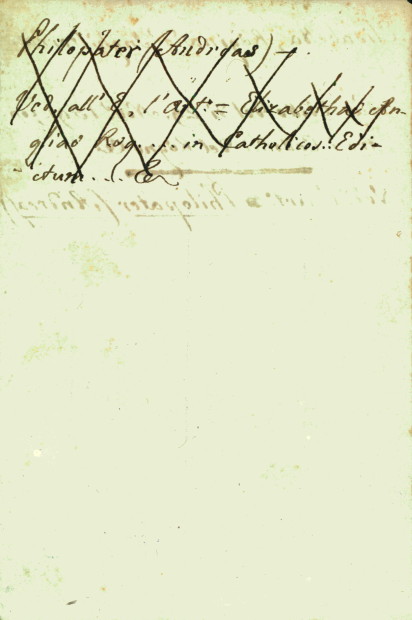 Philopater (Andreas) —.
Vedi all' E, l'Art.° = Elizabethae An-
gliae Reg. ... in Catholicos.. Edi-
ctum .... &